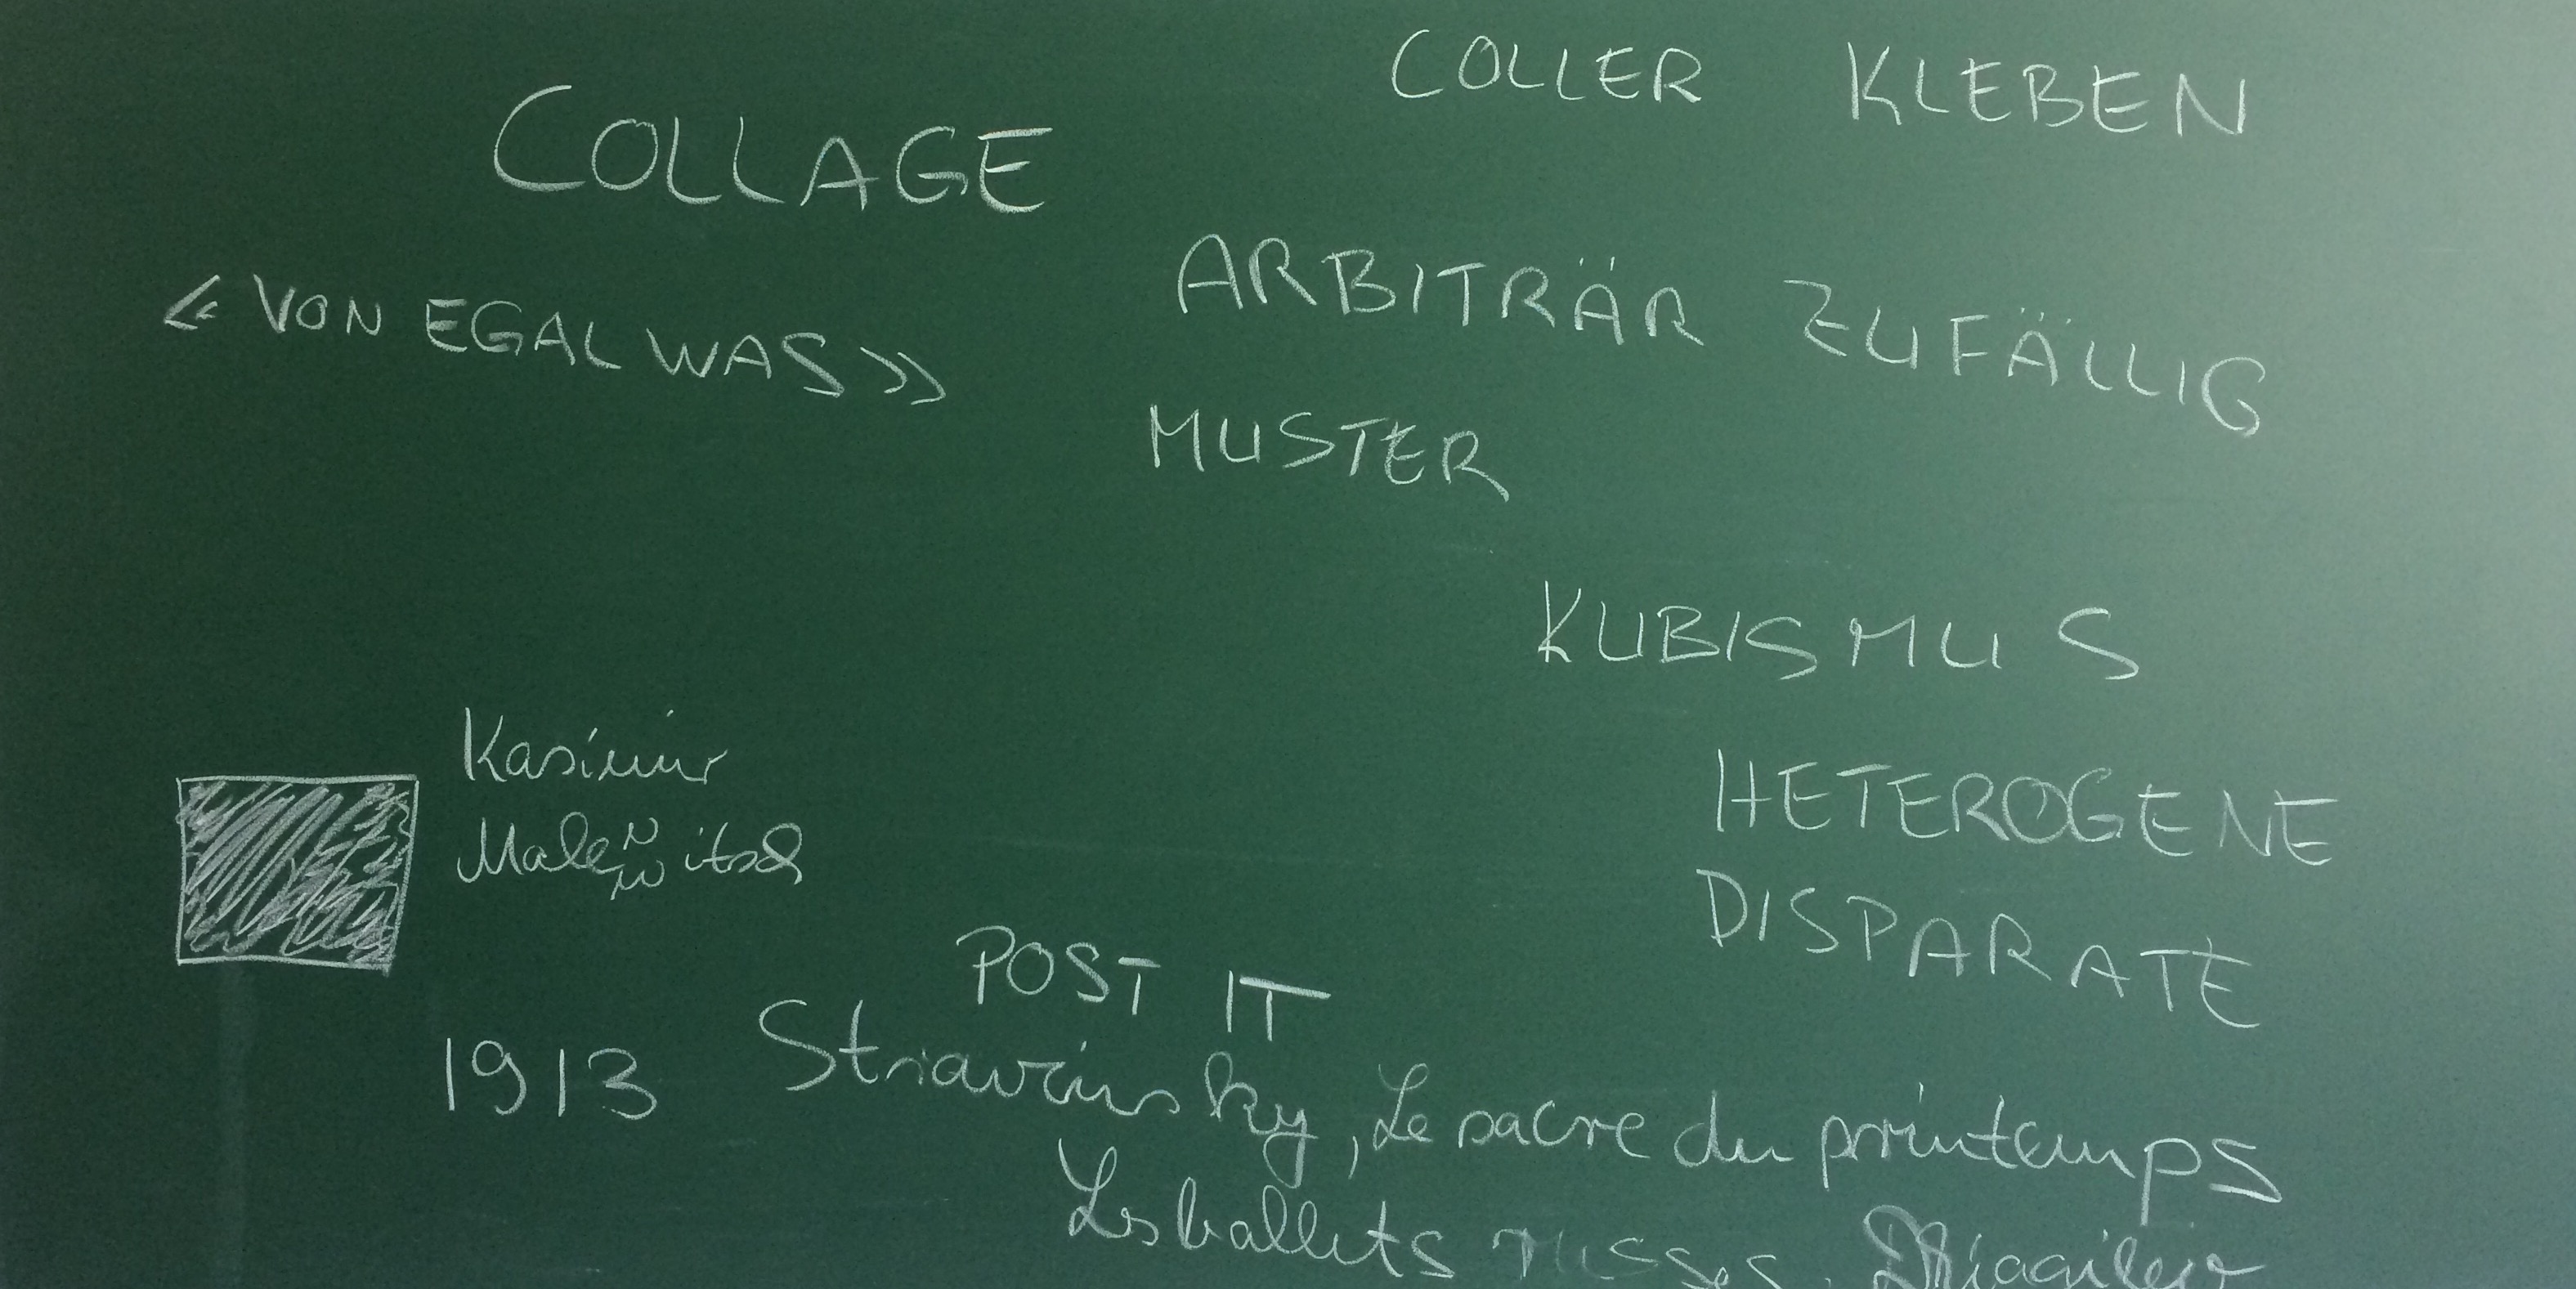 COLLER KLEBEN
COLLAGE
ARBITRÄR ZUFÄLLIG
« VON EGAL WAS »
MUSTER
KUBISMUS
Kasimir
Malewitsch
HETEROGENE
DISPARATE
POST IT
1913 Stravinsky, Le sacre du printemps
Les ballets russes,